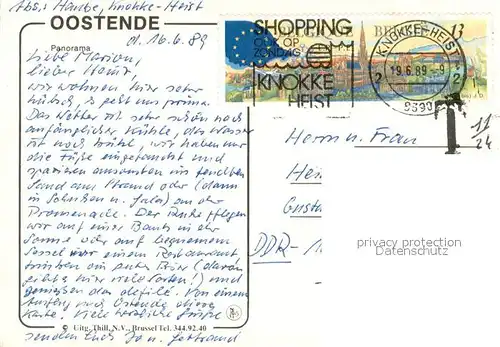 Abs.: Haube, Knokke-Heist
OOSTENDE
Panorama
d. 16.6.89
Liebe Marion,
lieber Hans,
wir wohnen hier sehr
hübsch, es geht uns prima.
Das Wetter ist sehr schön nach
anfänglicher Kühle, das Wasser
ist noch kühl, wir haben nur
die Füße eingetaucht und
spazieren ansonsten im feuchten
Sand am Strand oder (dann
in Schuhen u. Gala) an der
Promenade. Der Ruhe pflegen
wir auf einer Bank in der
Sonne oder auf bequemem
Sessel vor einem Restaurant
trinken ein gutes Bier (davon
gibt's hier viele Sorten!) und
genießen das defilé. Von einem
Ausflug nach Ostende diese
Karte! Viele herzliche Grüße
senden Euch Jo u. Gertraud
© Uitg. Thill, N.V., Brussel Tel. 344.92.40
SHOPPING
OOK OP
ZONDAG
KNOKKE
HEIST
13
KNOKKE-HEIST
19.6.89-9
2 2
8390
T
11
24
Herrn u. Frau
Hei
Gusta
DDR-1
privacy protection
Datenschutz